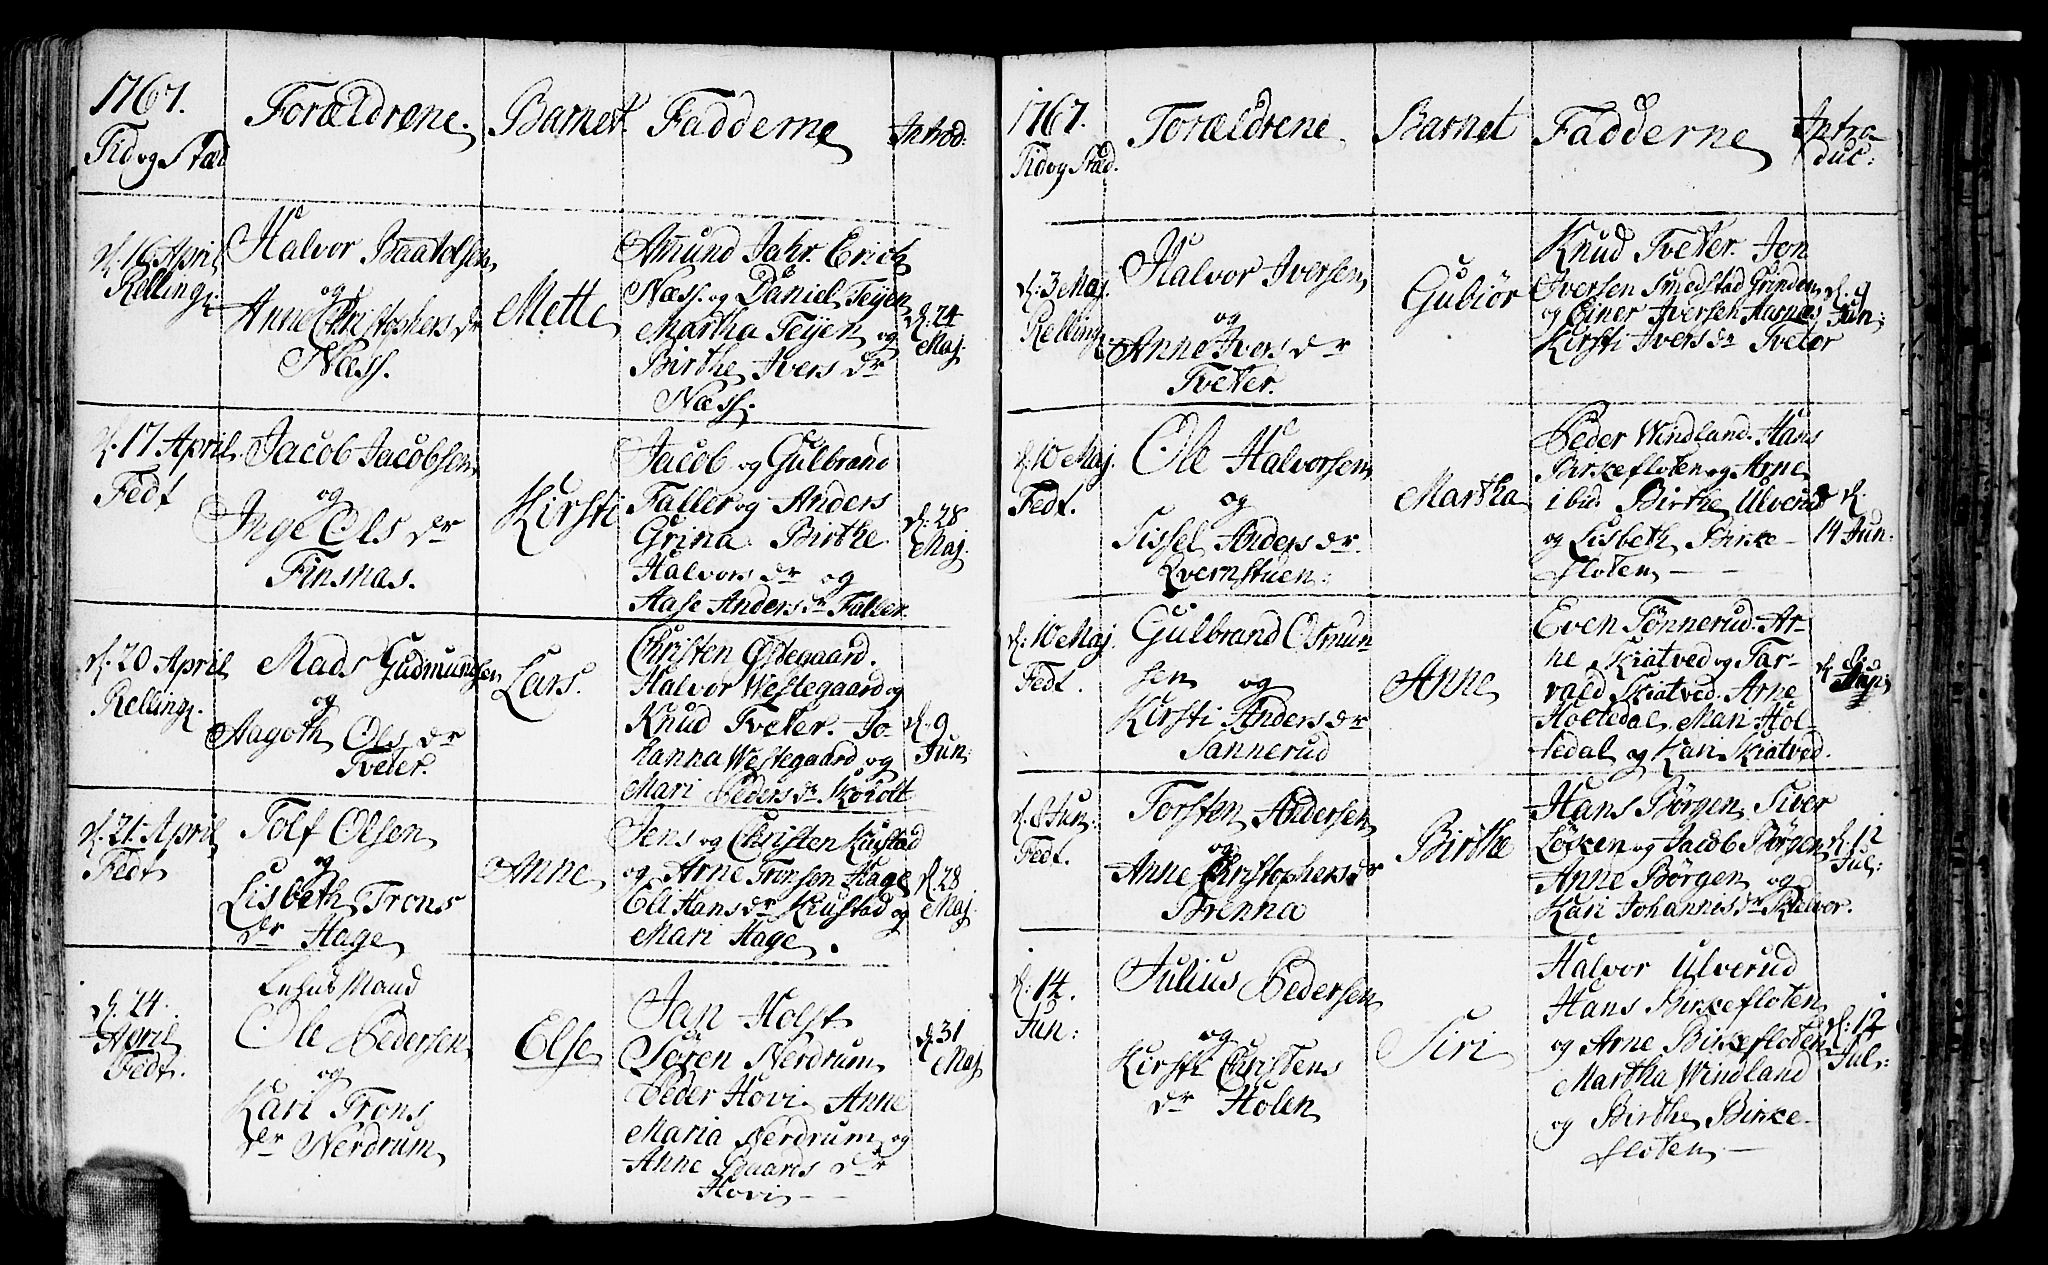 1767.
Tid og Stæd
Forældrene.
Barnet.
Fadderne
Introd:
d. 16 April
Relling:
Halvor Baardsen
og
Anne Christophers dr
Næss.
Mette
Amund Jahr. Erich
Næss. og Daniel Teijen
Martha Teijen og
Birthe Ivers dr
Næss.
d. 24
Maj:
d. 17 April.
Fedt
Jacob Jacobsen
og
Inge Ols dr
Finsnas.
Kirsti
Jacob og Gulbrand
Faller og Anders
Grina. Birthe
Halvors dr og
Aase Anders dr Faller.
d. 28
Maj:
d. 20 April
Relling.
Mads Gudmundsen
og
Aagoth Ols dr
Tveter.
Lars.
Christen Ødegaard.
Halvor Westegaard og
Knud Tveter. Jo-
hanna Westegaard og
Mari Peders dr
d. 9
Jun:
d. 21 April
Fedt
Tolf Olsen
og
Lisbeth Trons
dr Hage
Anne
Jens og Christen Kiustad
og Arne Tronsen Hage
Eli Hans dr Kiustad og
Mari Hage.
d. 28
Maj.
d. 24.
April
Fedt.
Mand
Ole Pedersen
og
Kari Trons
dr Nerdrum
Else
Jan Holst
Søren Nerdrum
Peder Hovi. Anne
Maria Nerdrum og
Anne dr
Hovi
d. 31
Maj
1767.
Tid og Stæd.
Forældrene
Barnet
Fadderne
Intro
duc:
d. 3 Maj.
Relling:
Halvor Iversen
og
Anne Ivers dr
Tveter.
Gubiør
Knud Tveter. Jon
Iversen Smedstad Grinden
og Einer Iversen Aarnæs
Kirsti Ivers dr Tveter
d. 9
Jun:
d. 10 Maj.
Fedt.
Ole Halvorsen
og
Sissel Anders dr
Kvernstuen:
Martha
Peder Windland. Hans
Birkefloten og Arne
ibid. Birthe Ulverud
og Lisbeth Birke-
floten
d.
14 Jun:
d: 10 Maj.
Fedt.
Gulbrand Osmun
sen og
Kirsti Anders dr
Sannerud
Anne
Even Tønnerud. Ar-
ne Kiatved og Tar-
vald Skiatved. Arne
Holtedal, Mari Hol-
tedal og Kari Skiatved.
d.
d. 8 Jun:
Fedt.
Torsten Andersen
og
Anne Christophers dr
Brenna
Birthe
Hans Børgen Siver
Løken og Jacob Børgen
Anne Børgen og
Kari Johannes dr Kelvor.
d. 12
Jul:
d. 14.
Jun:
Julius Pedersen
og
Kirsti Christens
dr Holen
Siri
Halvor Ulverud
Hans Birkefloten
og Arne Birkefloten
Martha Windland
og Birthe Birke-
floten
d. 12
Jul: